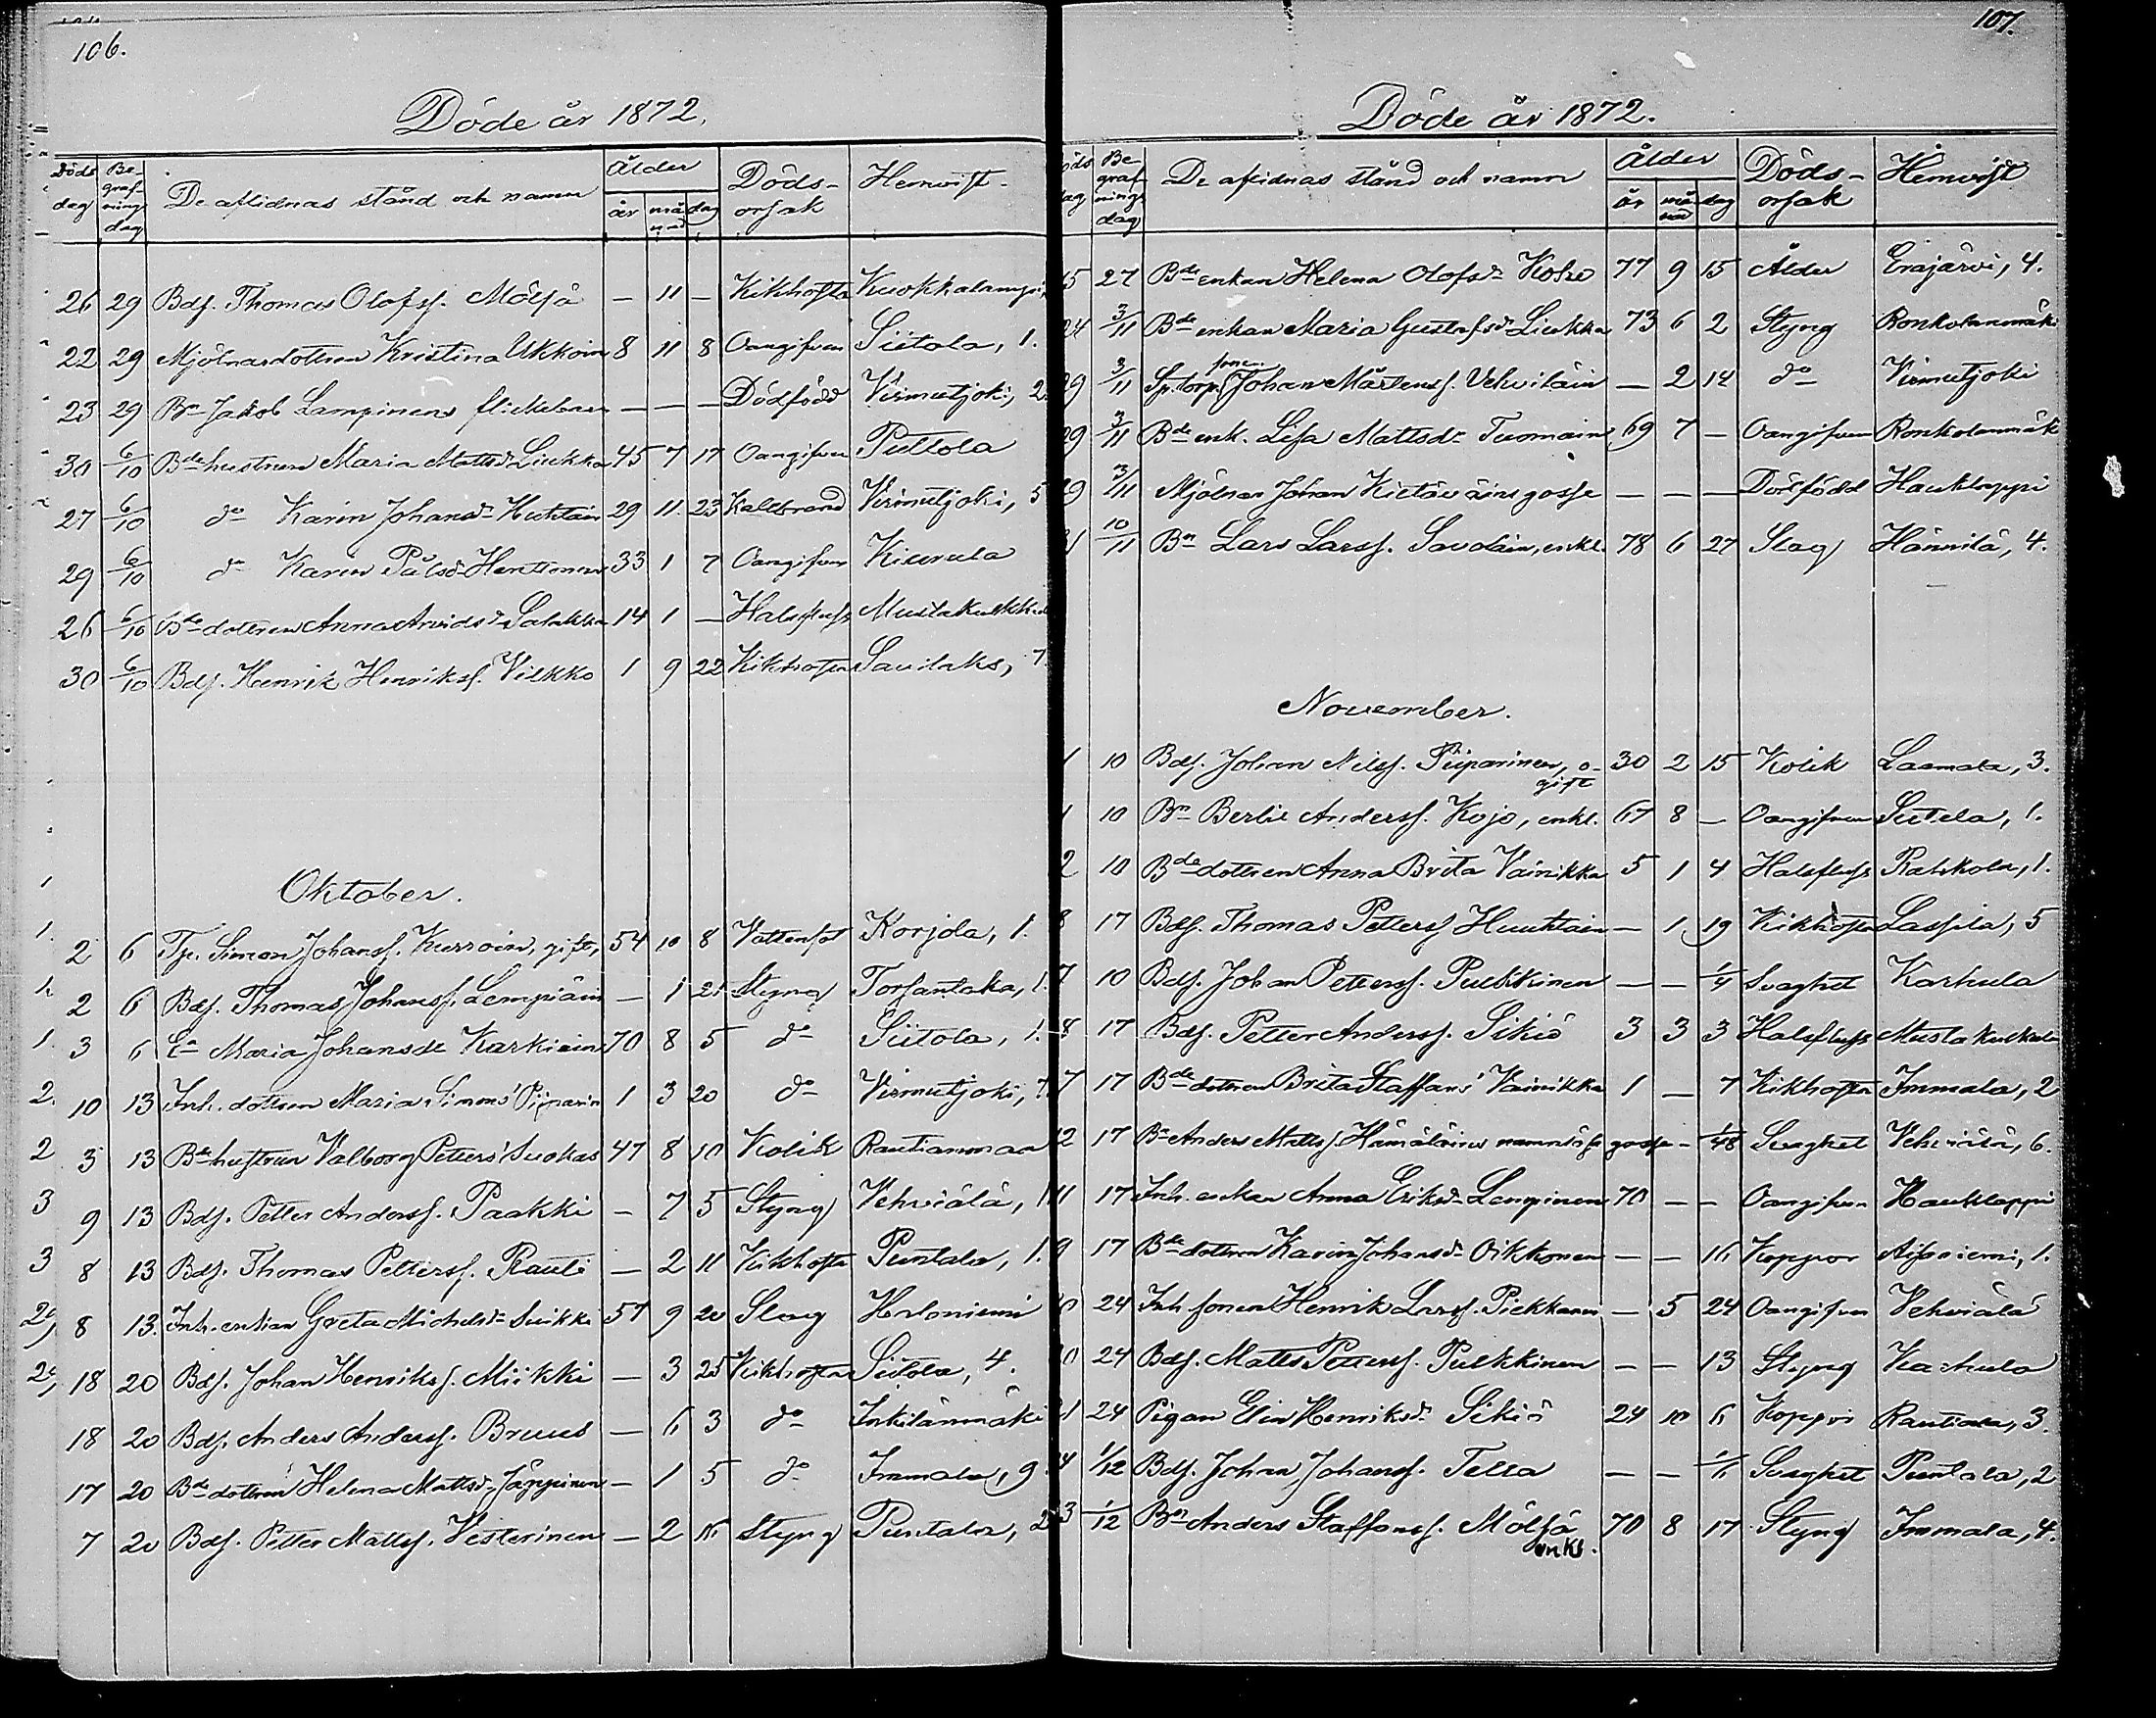 106.
Döde år 1872.
Döds dag | Be-graf-nings dag | De aflidnas stånd och namn | Ålder år månad dag | Döds-orsak | Hemvist
26 29 Bdſ. Thomas Olofsſ. Mölsä — 11 — Kikhosta
22 29 Mjölnardottren Kristina Ukkoin 8 11 8 Oangifven Siitola, 1.
23 29 Bn Jakob Lampinens flickebarn — — — Dödfödd Virmutjoki, 2
30 6/10 Bde hustrun Maria Mattsdr Liukka 45 7 17 Oangifven Puttola
27 6/10 do Karin Johansdr Huhtain 29 11 23 Kallbrand Virmutjoki, 5
29 6/10 do Karin Pålsdr Henttonen 33 1 7 Oangifven Kiurula
26 6/10 Bde dottren Anna Arvidsdr 14 1 — Halsfluss
30 6/10 Bdſ. Henrik Henriksſ. Vilkko 1 9 22 Kikhosta Saulaks, 7
Oktober.
2 6 Tp. Simon Johansſ. Kurroin, gift, 54 10 8 Vattensot Korjola, 1.
2 6 Bdſ. Thomas Johansſ. Lempiäin — 1 21 Styng Torsantaka, 1.
3 6 Maria Johansdr Karkiain 70 8 5 do Siitola, 1.
10 13 Inh. dottren Maria Simons Piiparin 1 3 20 do Virmutjoki, 7.
3 13 Bde hustrun Valborg Petters Suokas 47 8 10 Kolik Rautianmaa
9 13 Bdſ. Petter Andersſ. Paakki — 7 5 Styng Vehviälä, 1
8 13 Bdſ. Thomas Pettersſ. Rauti — 2 11 Kikhosta Puntala, 1.
8 13. Inh. enkan Greta Michelsdr Suikki 57 9 20 Slag Haloniemi
18 20 Bdſ. Johan Henriksſ. Miikki — 3 25 Kikhosta Siitola, 4.
18 20 Bdſ. Anders Andersſ. Bruus — 6 3 do Inkilänmäki
17 20 Bde dottren Helena Mattsdr Jäppinen — 1 5 do Immala, 9
7 20 Bdſ. Petter Mattsſ. Vesterinen — 2 16 Styng Puntala, 2
107.
Döde år 1872.
Döds dag | Be-graf-nings dag | De aflidnas stånd och namn | Ålder år månad dag | Döds-orsak | Hemvist
5 27 Bde enkan Helena Olofsdr Koho 77 9 15 Ålder Eräjärvi, 4.
24 3/11 Bde enkan Maria Gustafsdr Liukka 73 6 2 Styng Ronkolanmäki
29 3/11 Sp. torp. sonen Johan Mårtensſ. Vehviläin — 2 14 do Virmutjoki
29 3/11 Bde enk. Lisa Mattsdr Tuomain 69 7 — Oangifven Ronkolanmäk
29 3/11 Mjölnar Johan Kietäväins gosse — — — Dödfödd Hauklappi
31 10/11 Bn Lars Larsſ. Savolain, enkl. 78 6 27 Slag Hännilä, 4.
November.
1 10 Bdſ. Johan Nilsſ. Piiparinen, o-gift 30 2 15 Kolik Laamala, 3.
1 10 Bn Bertil Andersſ. Kojo, enkl. 67 8 — Oangifven Siitola, 1.
2 10 Bde dottren Anna Brita Vainikka 5 1 4 Halsfluss Rahikola, 1.
8 17 Bdſ. Thomas Pettersſ Huuhtain — 1 19 Kikhosta Lassila, 5
7 10 Bdſ. Johan Pettersſ. Pulkkinen — — 1/4 Svaghet Karhula
8 17 Bdſ. Petter Andersſ. Sikiö 3 3 3 Halsfluss Mustakulkula
7 17 Bde dottren Brita Staffans Vainikka 1 — 7 Kikhosta Immala, 2
12 17 Bn Anders Mattsſ. Hämäläins namnlösa gosse — 1/48 Svaghet Vehviälä, 6.
11 17 Inh. enkan Anna Eriksdr Lampinen 70 — — Oangifven Hauklappi
9 17 Bde dottren Karin Johansdr Oikkonen — — 16 Koppor Aisniemi, 1.
24 Inh. sonen Henrik Larsſ. Piekkanen — 5 24 Oangifven Vehviälä
24 Bdſ. Matts Pettersſ. Pulkkinen — — 13 Styng Karhula
21 24 Pigan Elin Henriksdr Sikiö 24 10 6 Koppor Rautiala, 3.
1/12 Bdſ. Johan Johansſ. Tella — — Svaghet Puntala, 2
1/12 Bn Anders Staffansſ. Mölsä enkl. 70 8 17 Styng Immala, 4.